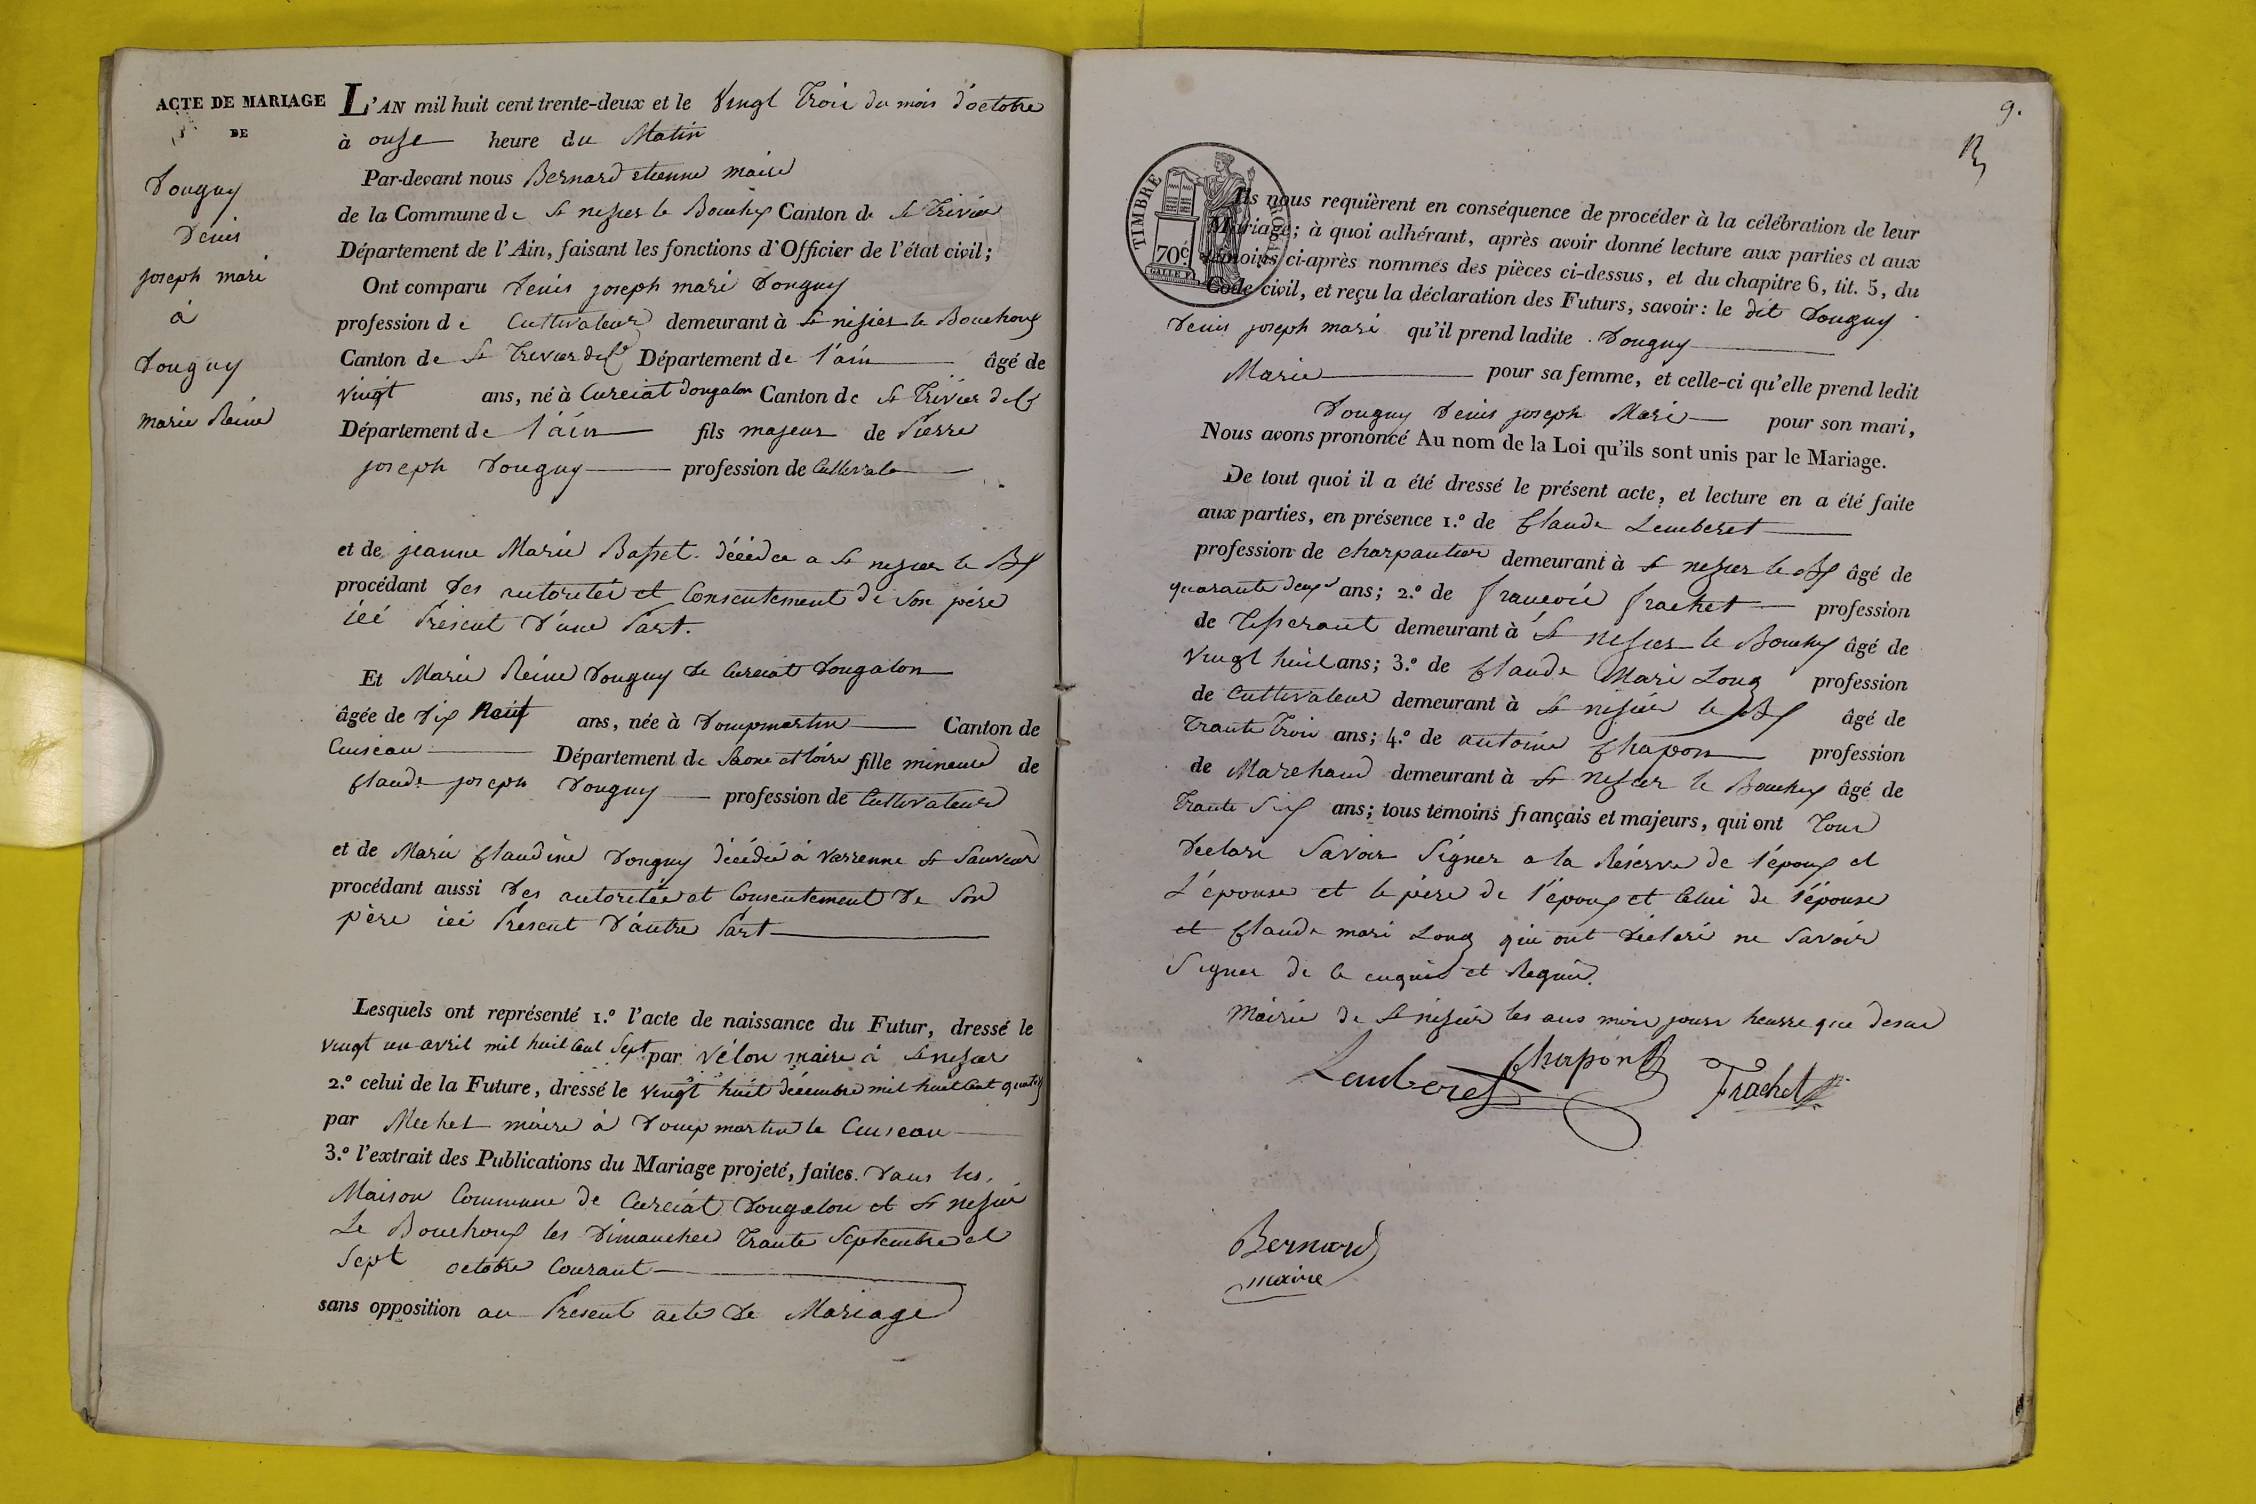 ACTE DE MARIAGE
DE
Douguy
Denis
joseph mari
à
Douguy
marie Reine
L'AN mil huit cent trente-deux et le Vingt Trois du mois d'octobre
à onze heure du Matin
Par-devant nous Bernard etienne maire
de la Commune de St nizier le Bouchx Canton de St Trivier
Département de l'Ain, faisant les fonctions d'Officier de l'état civil;
Ont comparu Denis joseph mari Douguy
profession de Cultivateur demeurant à St nizier le Bouchoux
Canton de St Trivier de C Département de l'ain âgé de
vingt ans, né à Curciat Dongalon Canton de St Trivier de C
Département de l'ain fils majeur de Pierre
joseph Douguy profession de Cultivate
et de jeanne Marie Basset décédée a St nezier le Bx
procédant Des autorités et Consentement de son père
ici Présent D'une Part.
Et Marie Reine Douguy de Curciat Dongalon
âgée de Dix Neuf ans, née à Dompmartin Canton de
Cuiseau Département de Saone et loire fille mineure de
Claude joseph Douguy profession de Cultivateur
et de Marie Claudine Douguy décédé à Varenne St Sauveur
procédant aussi Des autorités et Consentement De Son
père ici Présent D'autre Part
Lesquels ont représenté 1.º l'acte de naissance du Futur, dressé le
vingt un avril mil huit Cent Sept par Vélon maire à St nezier
2.º celui de la Future, dressé le vingt huit décembre mil huit Cent
par Mechet maire à Dompmartin le Cuiseau
3.º l'extrait des Publications du Mariage projeté, faites Dans les
Maison Commune de Curciat Dongalon et St nezier
Le Bouchoux les Dimanches Trante Septembre et
Sept octobre Courant
sans opposition au Présent acte De Mariage
9.
TIMBRE ROYAL
70 c
Ils nous requièrent en conséquence de procéder à la célébration de leur
Mariage; à quoi adhérant, après avoir donné lecture aux parties et aux
témoins ci-après nommés des pièces ci-dessus, et du chapitre 6, tit. 5, du
Code civil, et reçu la déclaration des Futurs, savoir: le dit Douguy
Denis joseph mari qu'il prend ladite Douguy
Marie pour sa femme, et celle-ci qu'elle prend ledit
Douguy Denis joseph Mari pour son mari,
Nous avons prononcé Au nom de la Loi qu'ils sont unis par le Mariage.
De tout quoi il a été dressé le présent acte, et lecture en a été faite
aux parties, en présence 1.º de Claude Lemberet
profession de charpantier demeurant à St nezier le Bx âgé de
quarante deux ans; 2.º de francois frachet profession
de Tisserant demeurant à St nezier le Bouchx âgé de
Vingt huit ans; 3.º de Claude Mari Long profession
de Cultivateur demeurant à St nizier le Bx âgé de
Trante Trois ans; 4.º de antoine Chapon profession
de Marchand demeurant à St nezier le Bouchx âgé de
Trante Six ans; tous témoins français et majeurs, qui ont Tous
Déclaré Savoir Signer a la Réserve de l'époux et
L'épouse et le père de l'époux et Celui de l'épouse
et Claude mari Long qui ont déclaré ne Savoir
Signer de ce enquis et Requis.
Mairie de St nizier les ans mois jours heurre que desus
Lemberet Chapon Frachet
Bernard
maire